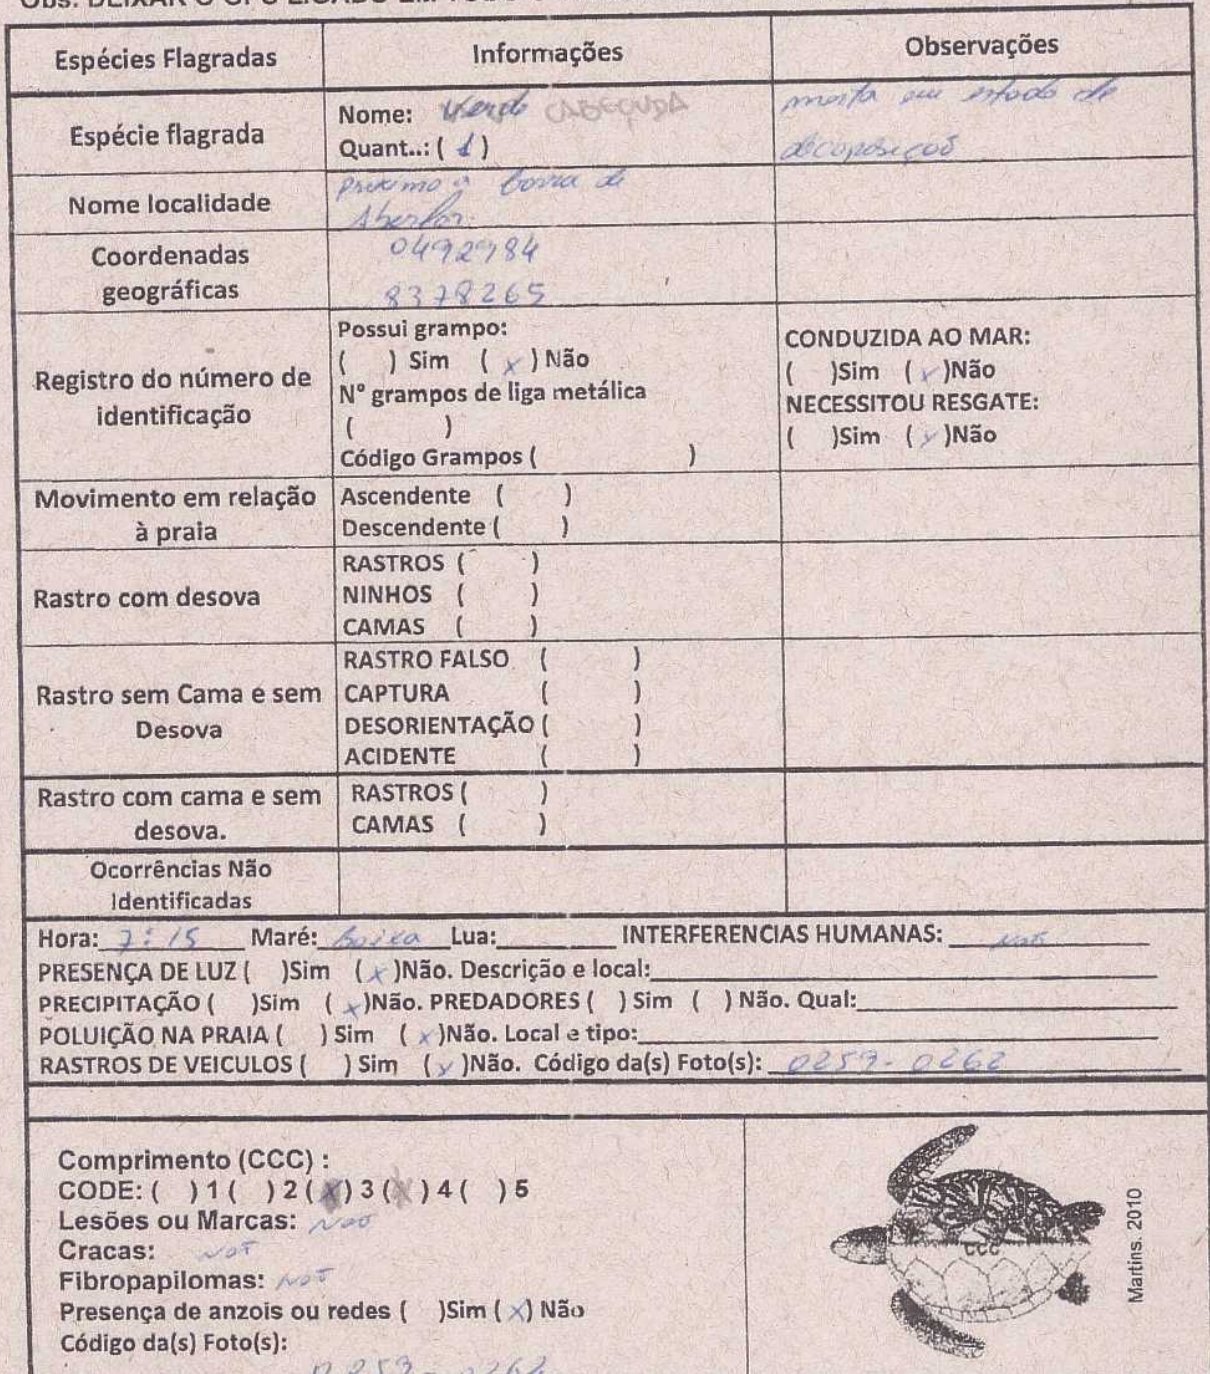 Obs: DEIXAR O GPS LIGADO EM TODO
Espécies Flagradas
Informações
Observações
Espécie flagrada
Nome: Verde CABEÇUDA
Quant..: ( 1 )
morta em estado de
decoposição
Nome localidade
proximo a barra de
Coordenadas
geográficas
0492984
8378265
Registro do número de
identificação
Possui grampo:
( ) Sim ( x ) Não
N° grampos de liga metálica
( )
Código Grampos ( )
CONDUZIDA AO MAR:
( )Sim ( x )Não
NECESSITOU RESGATE:
( )Sim ( x )Não
Movimento em relação
à praia
Ascendente ( )
Descendente ( )
Rastro com desova
RASTROS ( )
NINHOS ( )
CAMAS ( )
Rastro sem Cama e sem
Desova
RASTRO FALSO ( )
CAPTURA ( )
DESORIENTAÇÃO ( )
ACIDENTE ( )
Rastro com cama e sem
desova.
RASTROS ( )
CAMAS ( )
Ocorrências Não
Identificadas
Hora: 7:15 Maré: Baixa Lua:________ INTERFERENCIAS HUMANAS: não
PRESENÇA DE LUZ ( )Sim ( x )Não. Descrição e local:
PRECIPITAÇÃO ( )Sim ( x )Não. PREDADORES ( ) Sim ( ) Não. Qual:
POLUIÇÃO NA PRAIA ( ) Sim ( x )Não. Local e tipo:
RASTROS DE VEICULOS ( ) Sim ( x )Não. Código da(s) Foto(s): 0259-0262
Comprimento (CCC) :
CODE: ( ) 1 ( ) 2 ( X ) 3 ( X ) 4 ( ) 5
Lesões ou Marcas: Não
Cracas: Não
Fibropapilomas: Não
Presença de anzois ou redes ( )Sim ( X ) Não
Código da(s) Foto(s):
0259-0262
CCC
Martins. 2010